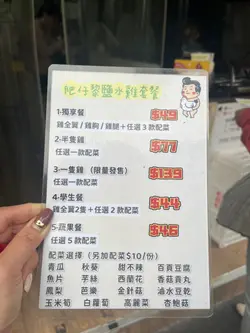 肥仔黎鹽水雞套餐
1-獨享餐 $49
雞全翼/雞胸/雞腿+任選3款配菜
2-半隻雞 $77
任選一款配菜
3-一隻雞 (限量發售) $139
任選一款配菜
4-學生餐 $44
雞全翼2隻+任選2款配菜
5-蔬果餐 $46
任選5款配菜
配菜選擇 (另加配菜$10/份)
青瓜 秋葵 甜不辣 百頁豆腐
魚片 芋絲 西蘭花 香菇貢丸
鳳梨 芭樂 金針菇 滷水豆乾
玉米筍 白蘿蔔 高麗菜 杏鮑菇